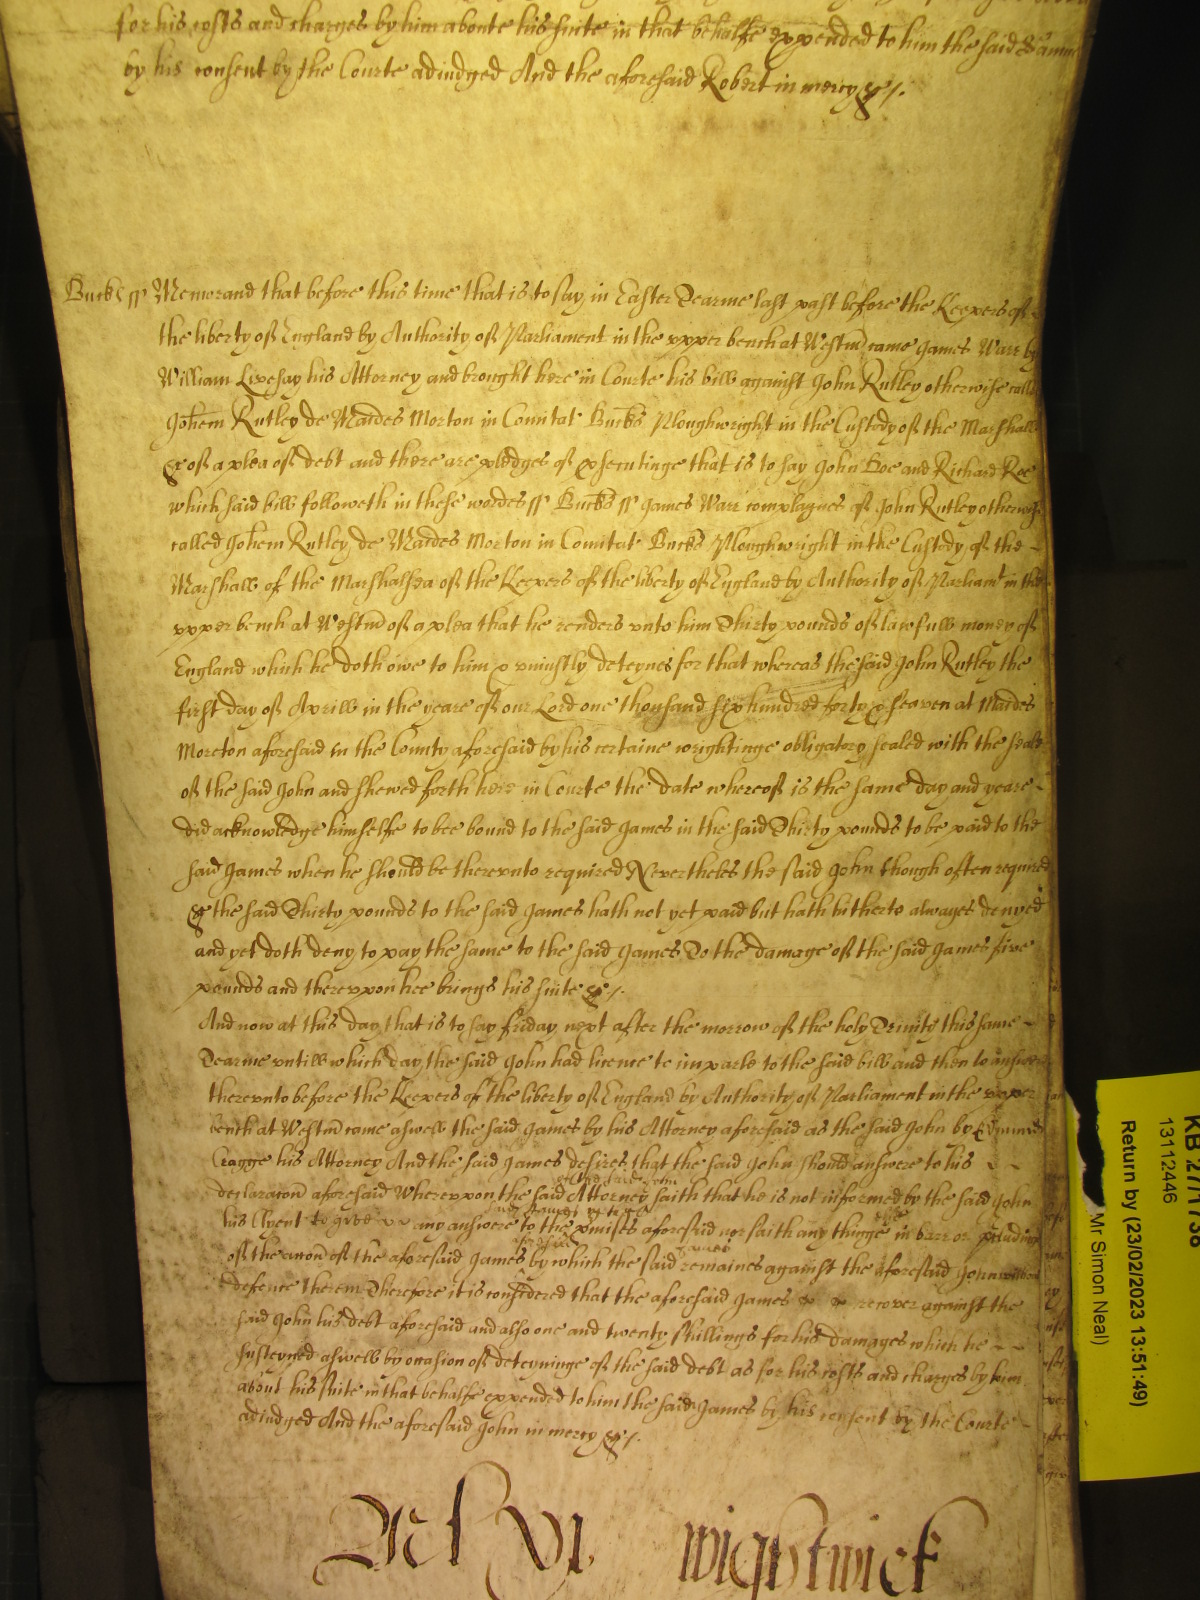 for his costs and charges by him aboute his suite in that behalfe expended to him the said
by his consent by the Courte adiudged And the aforesaid Robert in mercy &c/.
Bucks ss Memorand that before this time that is to say in Easter Tearme last past before the Keepers of
the liberty of England by Authority of Parliament in the upper bench at Westm came James Warr by
William Livesay his Attorney and brought here in Courte his bill against John Rutley otherwise called
Johem Rutley de Maides Morton in Comitat Bucks Ploughwright in the Custody of the Marshall
&c of a plea of debt and there are pledges of psecutinge that is to say John Doe and Richard Roe
which said bill followeth in these wordes ss Bucks ss James Warr complaynes of John Rutley otherwise
called Johem Rutley de Maides Morton in Comitat Bucks Ploughwright in the Custody of the
Marshall of the Marshalsea of the Keepers of the liberty of England by Authority of Parliamt in the
upper bench at Westm of a plea that he renders unto him Thirty pounds of lawfull money of
England which he doth owe to him & uniustly deteynes for that whereas the said John Rutley the
first day of Aprill in the yeare of our Lord one thousand six hundred forty & seaven at Maides
Moreton aforesaid in the County aforesaid by his certaine wrightinge obligatory sealed with the seale
of the said John and shewed forth here in Courte the date whereof is the same day and yeare
did acknowledge himselfe to bee bound to the said James in the said Thirty pounds to be paid to the
said James when he should be thereunto required Nevertheles the said John though often required
&c the said Thirty pounds to the said James hath not yet paid but hath hitherto alwayes denyed
and yet doth deny to pay the same to the said James To the damage of the said James five
pounds and thereupon hee brings his suite &c/.
And now at this day that is to say friday next after the morrow of the holy Trinity this same
Tearme untill which day the said John had licence to imparle to the said bill and then to answere
thereunto before the Keepers of the liberty of England by Authority of Parliament in the upper
bench at Westm came aswell the said James by his Attorney aforesaid as the said John by Edmund
Cragge his Attorney And the said James desires that the said John should answere to his
declaracon aforesaid Whereupon the said Attorney saith that he is not informed by the said John
his Clyent any answere to the pmises aforesaid nor saith any thinge in barr or pcludinge
of the accon of the aforesaid James by which the said James remaines against the aforesaid John without
defence therein Therefore it is considered that the aforesaid James recover against the
said John his debt aforesaid and also one and twenty shillings for his damages which he
susteyned aswell by occasion of deteyninge of the said debt as for his costs and charges by him
about his suite in that behalfe expended to him the said James by his consent by the Courte
adiudged And the aforesaid John in mercy &c/.
wightwick
KB 27/1738
13112446
Return by (23/02/2023 13:51:49)
Mr Simon Neal)